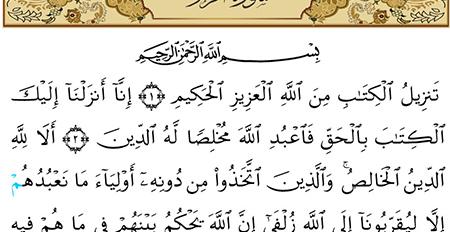 بِسْمِ ٱللَّهِ ٱلرَّحْمَٰنِ ٱلرَّحِيمِ
تَنزِيلُ ٱلْكِتَٰبِ مِنَ ٱللَّهِ ٱلْعَزِيزِ ٱلْحَكِيمِ ١ إِنَّآ أَنزَلْنَآ إِلَيْكَ
ٱلْكِتَٰبَ بِٱلْحَقِّ فَٱعْبُدِ ٱللَّهَ مُخْلِصًا لَّهُ ٱلدِّينَ ٢ أَلَا لِلَّهِ
ٱلدِّينُ ٱلْخَالِصُ ۚ وَٱلَّذِينَ ٱتَّخَذُوا۟ مِن دُونِهِۦٓ أَوْلِيَآءَ مَا نَعْبُدُهُمْ
إِلَّا لِيُقَرِّبُونَآ إِلَى ٱللَّهِ زُلْفَىٰٓ إِنَّ ٱللَّهَ يَحْكُمُ بَيْنَهُمْ فِى مَا هُمْ فِيهِ